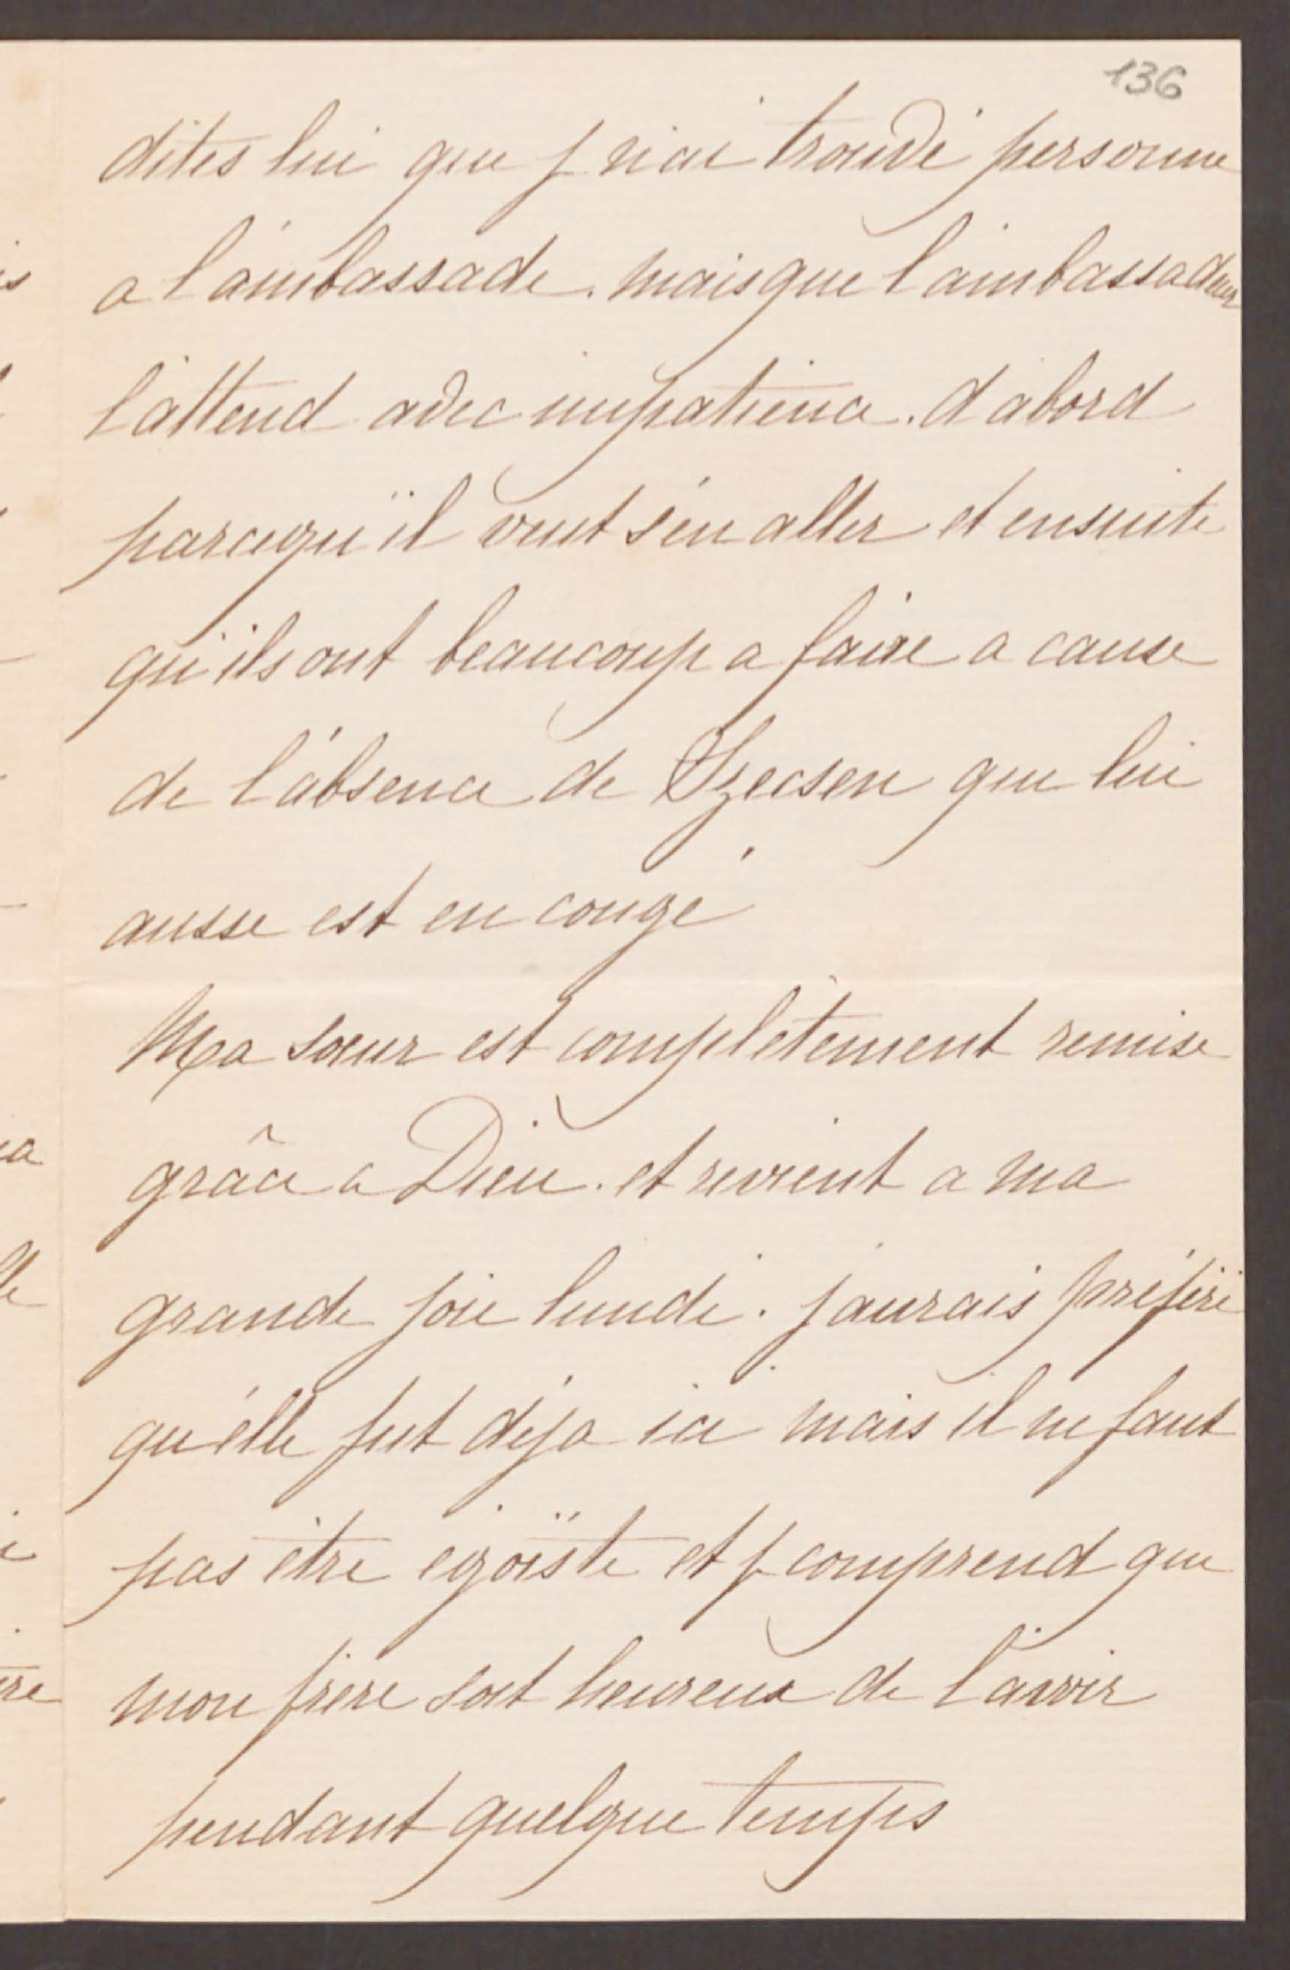 136
dites lui que j n'ai trouvé personne
a l'ambassade. mais que l'ambassadeur
l'attend avec impatience. d'abord
parcequ'il veut s'en aller et ensuite
qu'ils ont beaucoup a faire a cause
de l'absence de Szecsen que lui
ausse est en congé
Ma sœur est complètement remise
grâce a Dieu. et revient a ma
grande joie lundi. j'aurais préféré
qu'elle fut déja ici mais il ne faut
pas être egoïste et j comprend que
mon frère soit heureux de l'avoir
pendant quelque temps